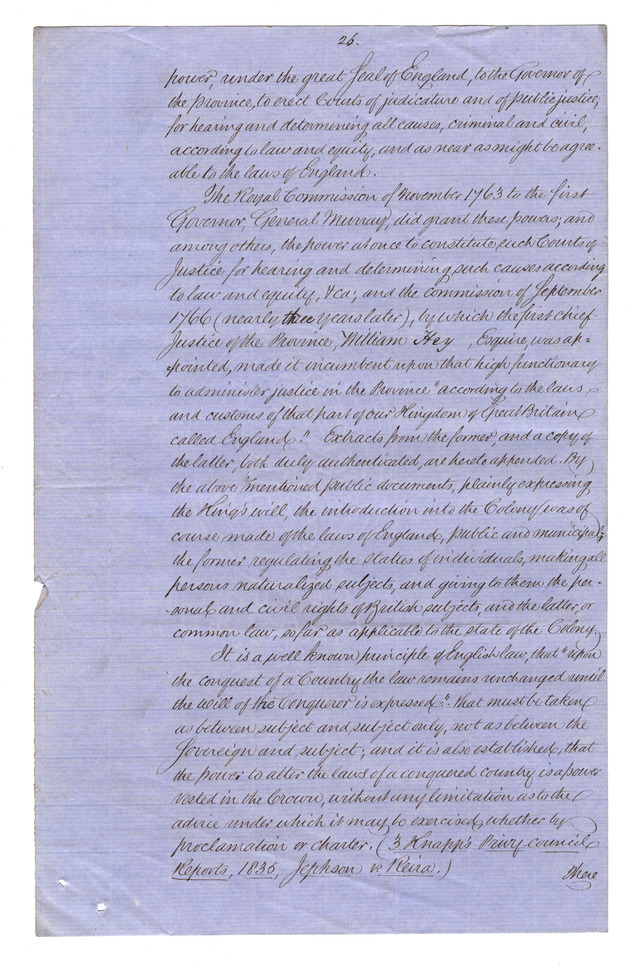 26.
power, under the great Seal of England, to the Governor of
the Province, to erect Courts of judicature and of public justice,
for hearing and determining all causes, criminal and civil,
according to law and equity, and as near as might be agree-
able to the laws of England.
The Royal Commission of November 1763 to the first
Governor, General Murray, did grant these powers; and
among others, the power at once to constitute such Courts of
Justice for hearing and determining such causes according
to law and equity, &ca; and the commission of September
1766 (nearly three years later), by which the first chief
Justice of the Province, William Hey, Esquire, was ap-
-pointed, made it incumbent upon that high functionary
to administer justice in the Province "according to the laws
and customs of that part of our Kingdom of Great Britain
called England." Extracts from the former, and a copy of
the latter, both duly authenticated, are hereto appended. By
the above mentioned public documents, plainly expressing
the King's will, the introduction into the Colony was of
course made of the laws of England, public and municipal;
the former regulating the status of individuals, making all
persons naturalized subjects, and giving to them the per-
-sonal and civil rights of British subjects, and the latter, or
common law, so far as applicable to the state of the Colony.
It is a well known principle of English law, that "upon
the conquest of a Country the law remains unchanged until
the will of the Conqueror is expressed"- that must be taken
as between subject and subject only, not as between the
Sovereign and subject; and it is also established, that
the power to alter the laws of a conquered country is a power
vested in the Crown, without any limitation as to the
advice under which it may be exercised, whether by
proclamation or charter. (3 Knapp's Privy Council
Reports, 1835, Jephson v. Reira.)
There